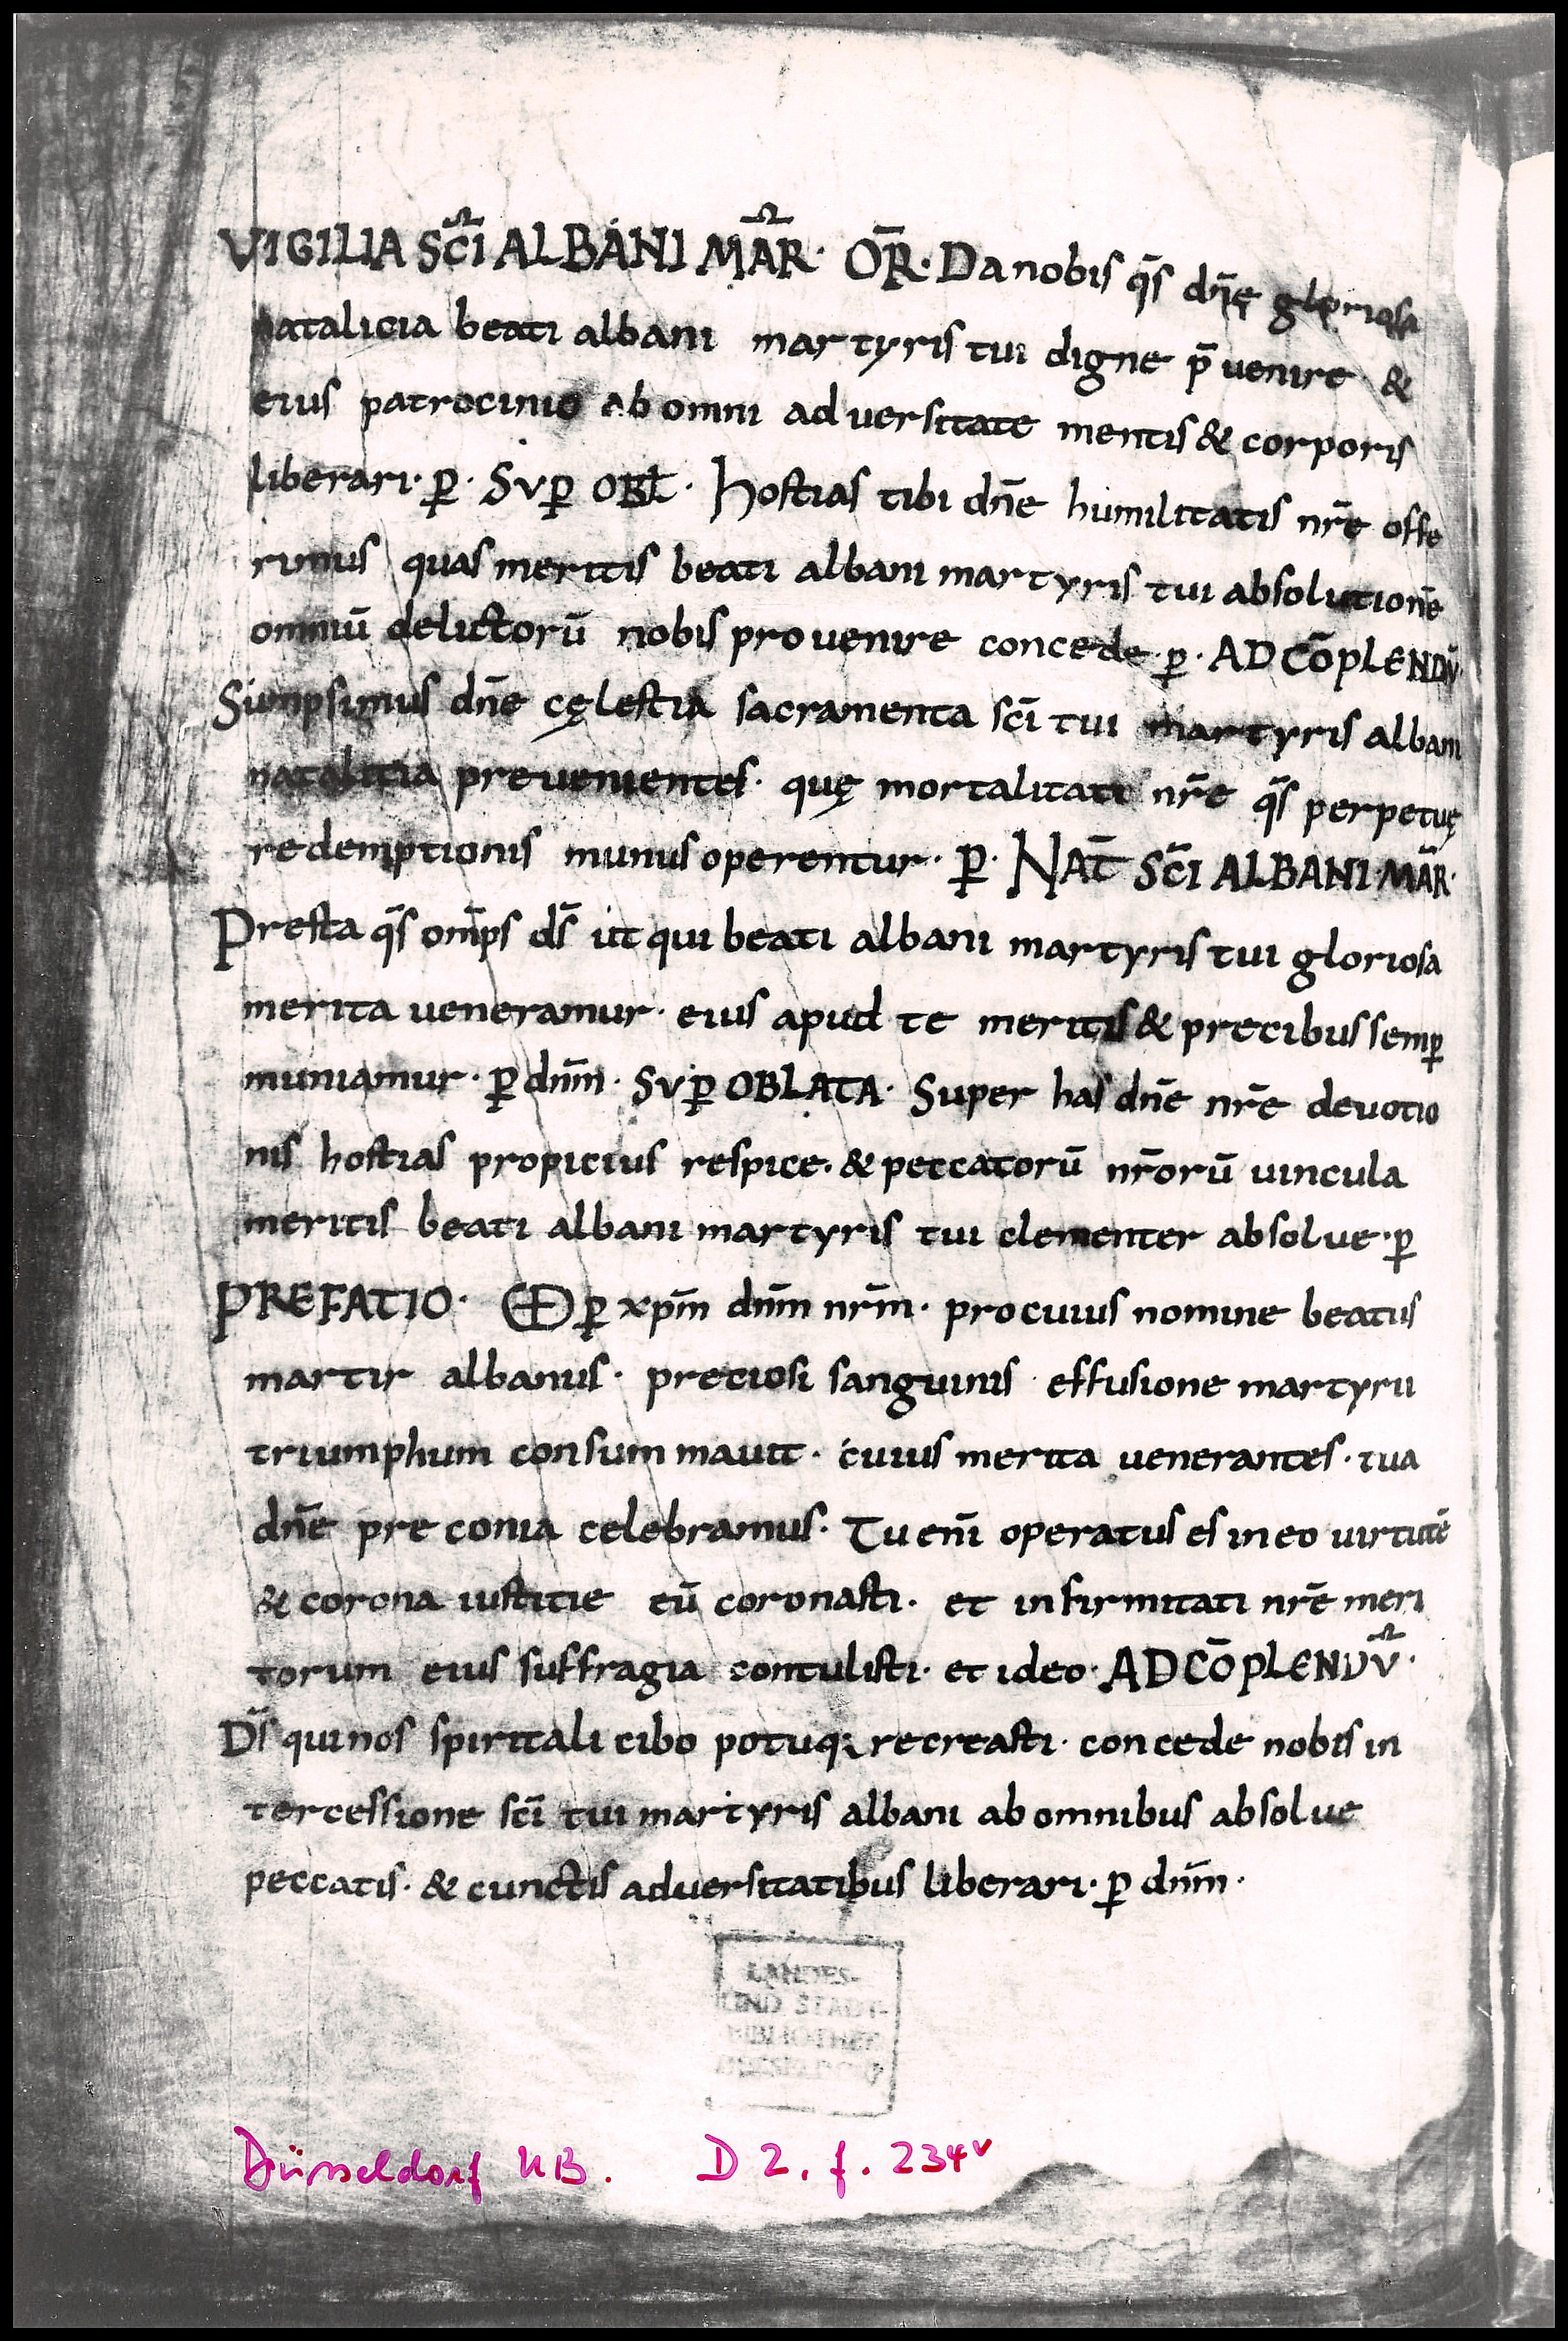 VIGILIA SC̅I ALBANI MA̅R· OR̅· Da nobis q̅s dn̅ę gloriosa
natalicia beati albani martyris tui digne p̅uenire &
eius patrocinio ab omni aduersitate mentis & corporis
liberari· ꝑ· SVꝑ OBŁ· Hostias tibi dn̅e humilitatis nr̅e offe
rimus quas meritis beati albani martyris tui absolutione̅
omniu̅ delictoru̅ nobis prouenire concede· ꝑ· AD CO̅PLENDV̅·
Sumpsimus dn̅e cęlestia sacramenta sc̅i tui martyris albani
natalitia preuenientes· quę mortalitati nr̅e q̅s perpetuę
redemptionis munus operentur· ꝑ· NAT̅ SC̅I ALBANI MA̅R·
Presta q̅s om̅ps ds̅ ut qui beati albani martyris tui gloriosa
merita ueneramur· eius apud te meritis & precibus semꝑ
muniamur· ꝑ dn̅m· SVꝑ OBLATA· Super has dn̅e nr̅e deuotio
nis hostias propicius respice· & peccatoru̅ nr̅oru̅ uincula
meritis beati albani martyris tui clementer absolue· ꝑ
PREFATIO· VD ꝑ xp̅m dn̅m nr̅m· pro cuius nomine beatus
martir albanus· preciosi sanguinis effusione martyrii
triumphum consummauit· cuius merita uenerantes· tua
dn̅e preconia celebramus· Tu eni̅ operatus es in eo uirtute̅
& corona iustitie eu̅ coronasti· et infirmitati nr̅e meri
torum eius suffragia contulisti· et ideo· AD CO̅PLENDV̅·
Ds̅ qui nos spiritali cibo potuq; recreasti· concede nobis in
tercessione sc̅i tui martyris albani ab omnibus absolue
peccatis· & cunctis aduersitatibus liberari· ꝑ dn̅m·
LANDES-
UND STADT-
BIBLIOTHEK
Düsseldorf UB. D 2, f. 234ᵛ